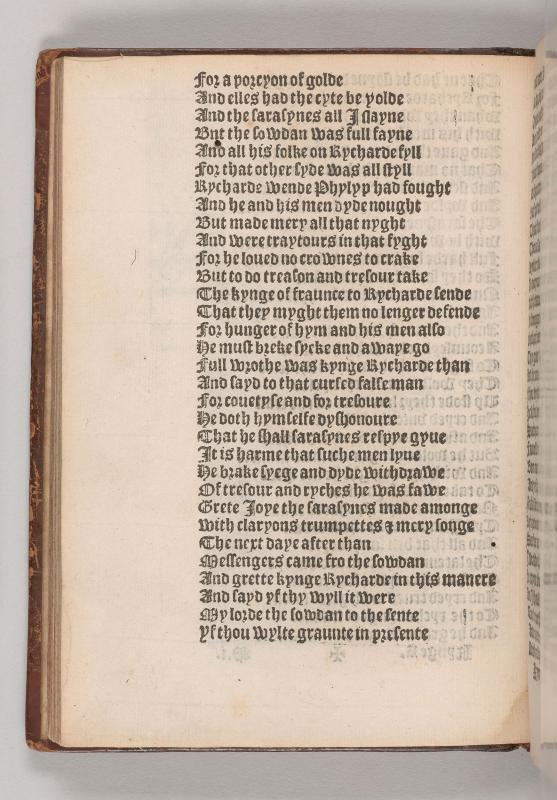 For a porcyon of golde
And elles had the cyte be yolde
And the sarasynes all I slayne
But the sowdan was full fayne
And all his folke on Rycharde fyll
For that other syde was all styll
Rycharde wende Phylyp had fought
And he and his men dyde nought
But made mery all that nyght
And were traytours in that fyght
For he loued no crownes to crake
But to do treason and tresour take
The kynge of fraunce to Rycharde sende
That they myght them no lenger defende
For hunger of hym and his men also
He must breke sycke and awaye go
Full wrothe was kynge Rycharde than
And sayd to that cursed false man
For couetyse and for tresoure
He doth hymselfe dyshonoure
That he shall sarasynes respye gyue
It is harme that suche men lyue
He brake syege and dyde withdrawe
Of tresour and ryches he was fawe
Grete Joye the sarasynes made amonge
with claryons trumpettes & mery songe
The next daye after than
Messengers came fro the sowdan
And grette kynge Rycharde in this manere
And sayd yf thy wyll it were
My lorde the sowdan to the sente
Yf thou wylte graunte in presente